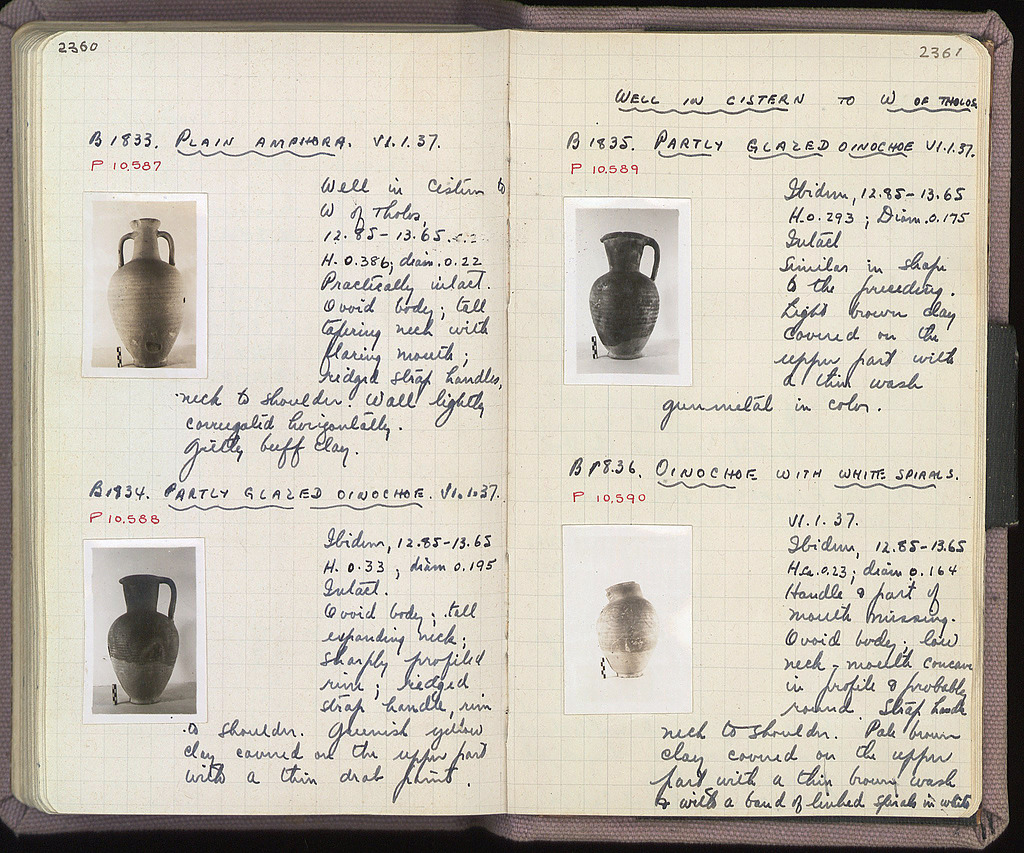 2360
B 1833. PLAIN AMPHORA. VI.1.37.
P 10,587
Well in cistern to
W of Tholos,
12.85-13.65.
H. 0.386; diam. 0.22
Practically intact.
Ovoid body; tall
tapering neck with
flaring mouth;
ridged strap handles,
neck to shoulder. Wall lightly
corrugated horizontally.
Gritty buff clay.
B 1834. PARTLY GLAZED OINOCHOE. VI.1.37.
P 10,588
Ibidem, 12.85-13.65
H. 0.33, diam 0.195
Intact.
Ovoid body; tall
expanding neck;
sharply profiled
rim; ridged
strap handle, rim
to shoulder. Greenish yellow
clay covered on the upper part
with a thin drab paint.
2361
WELL IN CISTERN TO W OF THOLOS
B 1835. PARTLY GLAZED OINOCHOE VI.1.37.
P 10,589
Ibidem, 12.85-13.65
H. 0.293; Diam. 0.175
Intact
Similar in shape
to the preceding.
Light brown clay
covered on the
upper part with
a thin wash
gunmetal in color.
B 1836. OINOCHOE WITH WHITE SPIRALS.
P 10,590
VI.1.37.
Ibidem, 12.85-13.65
H. 0.23; diam 0.164
Handle & part of
mouth missing.
Ovoid body; low
neck-mouth concave
in profile & probably
round. Strap handle
neck to shoulder. Pale brown
clay covered on the upper
part with a thin brown wash
& with a band of linked spirals in white